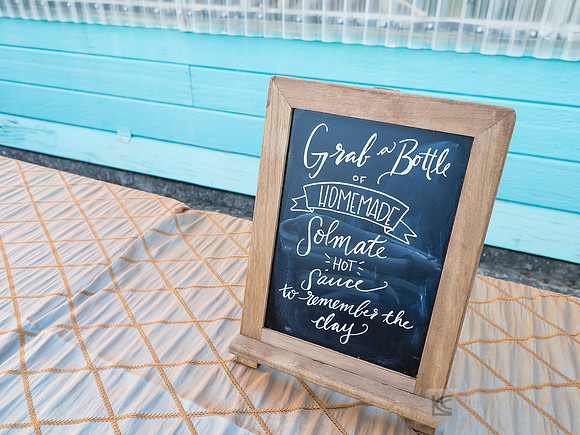 Grab a Bottle
OF
HOMEMADE
Solmate
HOT
Sauce
to remember the
day